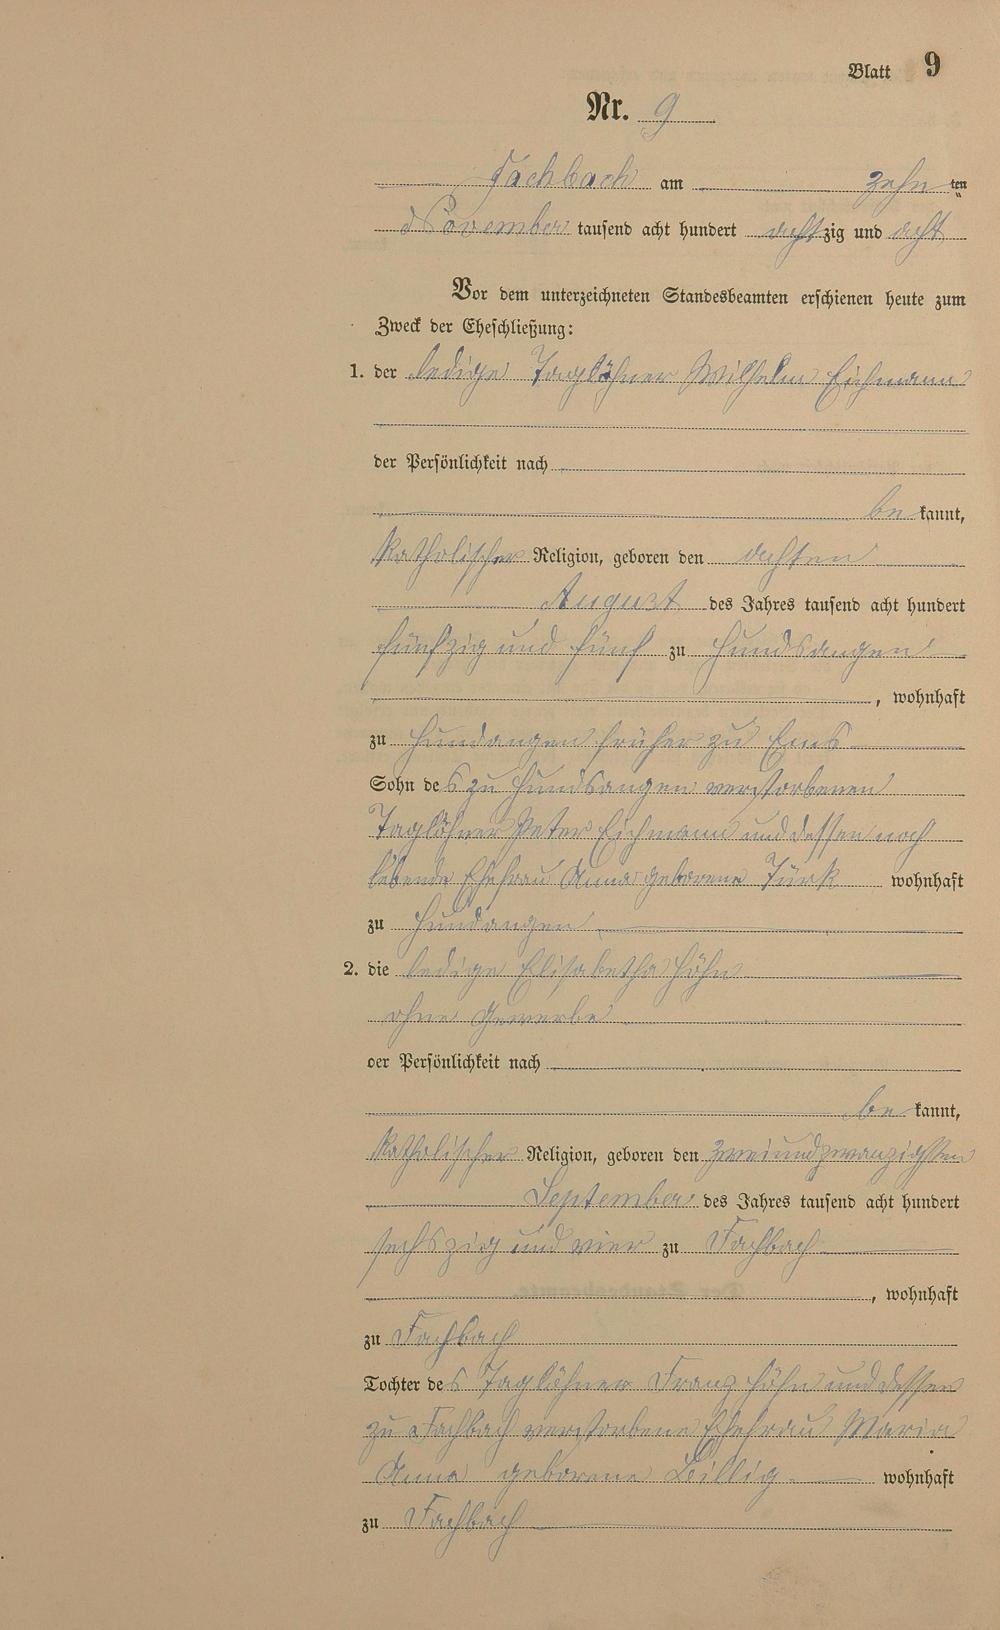 Blatt 9
Nr. 9
Fachbach am zehnten
November tausend acht hundert achtzig und acht
Vor dem unterzeichneten Standesbeamten erschienen heute zum
Zweck der Eheschließung:
1. der ledige Taglöhner Wilhelm Eichmann
der Persönlichkeit nach
bekannt,
katholischer Religion, geboren den achten
August des Jahres tausend acht hundert
fünfzig und fünf zu Hundsangen
, wohnhaft
zu Hundangen früher zu Ems
Sohn des zu Hundsangen verstorbenen
Taglöhner Peter Eichmann und dessen noch
lebende Ehefrau Anna geborene Türk wohnhaft
zu Hundangen
2. die ledige Elisabetha Höhn
ohne Gewerbe
der Persönlichkeit nach
bekannt,
katholischer Religion, geboren den zweiundzwanzigsten
September des Jahres tausend acht hundert
sechszig und vier zu Fachbach
, wohnhaft
zu Fachbach
Tochter des Taglöhner Franz Höhn und dessen
zu Fachbach verstorbene Ehefrau Maria
Anna geborene Billig wohnhaft
zu Fachbach